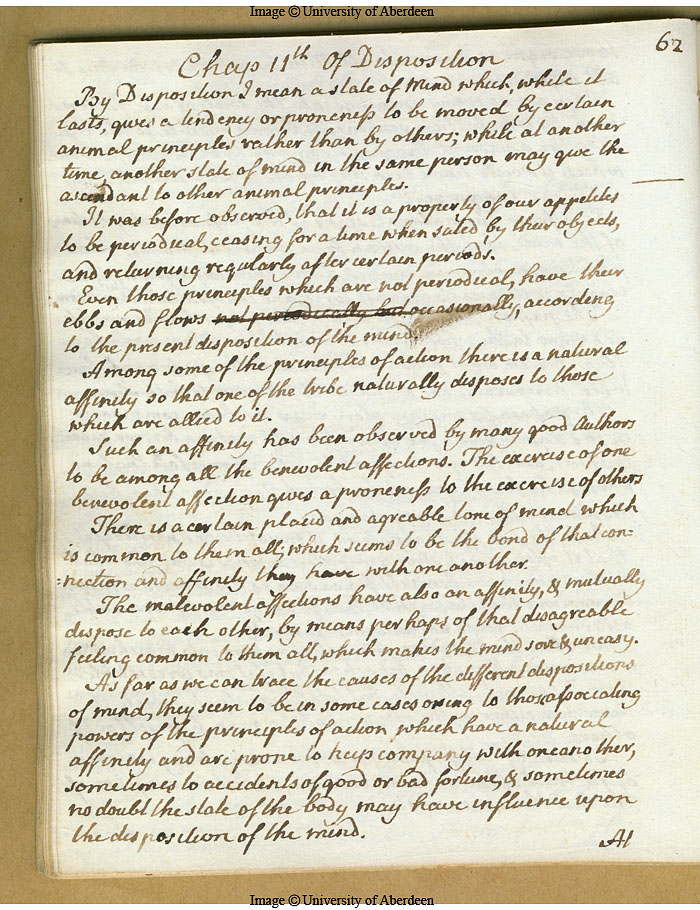 Image © University of Aberdeen
62
Chap 11th Of Disposition
By Disposition I mean a state of Mind which, while it
lasts, gives a tendency or proneness to be moved by certain
animal principles rather than by others; while at another
time, another state of mind in the same person may give the
ascendant to other animal principles.
It was before observed, that it is a property of our appetites
to be periodical, ceasing for a time when sated by their objects,
and returning regularly after certain periods.
Even those principles which are not periodical, have their
ebbs and flows not periodically but occasionally, according
to the present disposition of the mind.
Among some of the principles of action there is a natural
affinity so that one of the tribe naturally disposes to those
which are allied to it.
Such an affinity has been observed by many good Authors
to be among all the benevolent affections. The exercise of one
benevolent affection gives a proneness to the exercise of others
There is a certain placid and agreable tone of mind which
is common to them all, which seems to be the bond of that con=
=nection and affinity they have with one another.
The malevolent affections have also an affinity, & mutually
dispose to each other, by means perhaps of that disagreable
feeling common to them all, which makes the mind sore & uneasy.
As far as we can trace the causes of the different dispositions
of mind, they seem to be in some cases owing to those associating
powers of the principles of action, which have a natural
affinity and are prone to keep company with one another,
sometimes to accidents of good or bad fortune, & sometimes
no doubt the state of the body may have influence upon
the disposition of the mind.
At
Image © University of Aberdeen